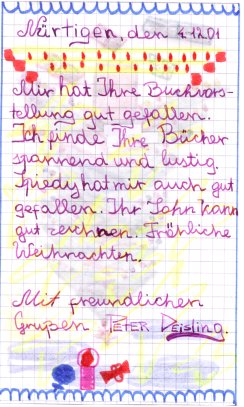 Nürtigen, den 4.12.01
Mir hat Ihre Buchvors-
tellung gut gefallen.
Ich finde Ihre Bücher
spannend und lustig.
Spiedy hat mir auch gut
gefallen. Ihr Sohn kann
gut zeichnen. Fröhliche
Weihnachten.
Mit freundlichen
Grußen PETER Deisling.